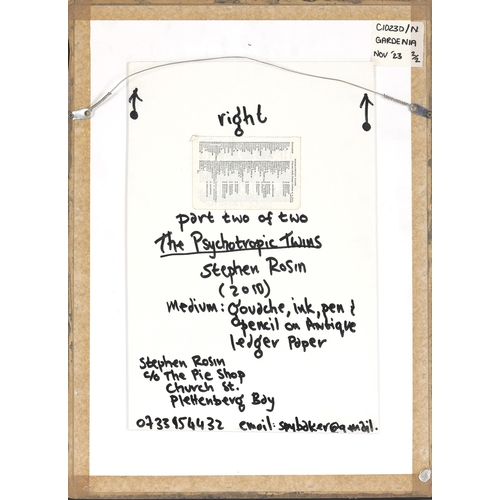 C1023D/N
GARDENIA
NOV '23 2/2
right
part two of two
The Psychotropic Twins
Stephen Rosin
(2010)
Medium: gouache, ink, pen &
pencil on Antique
ledger Paper
Stephen Rosin
c/o The Pie Shop
Church St.
Plettenberg Bay
0733954432 email: